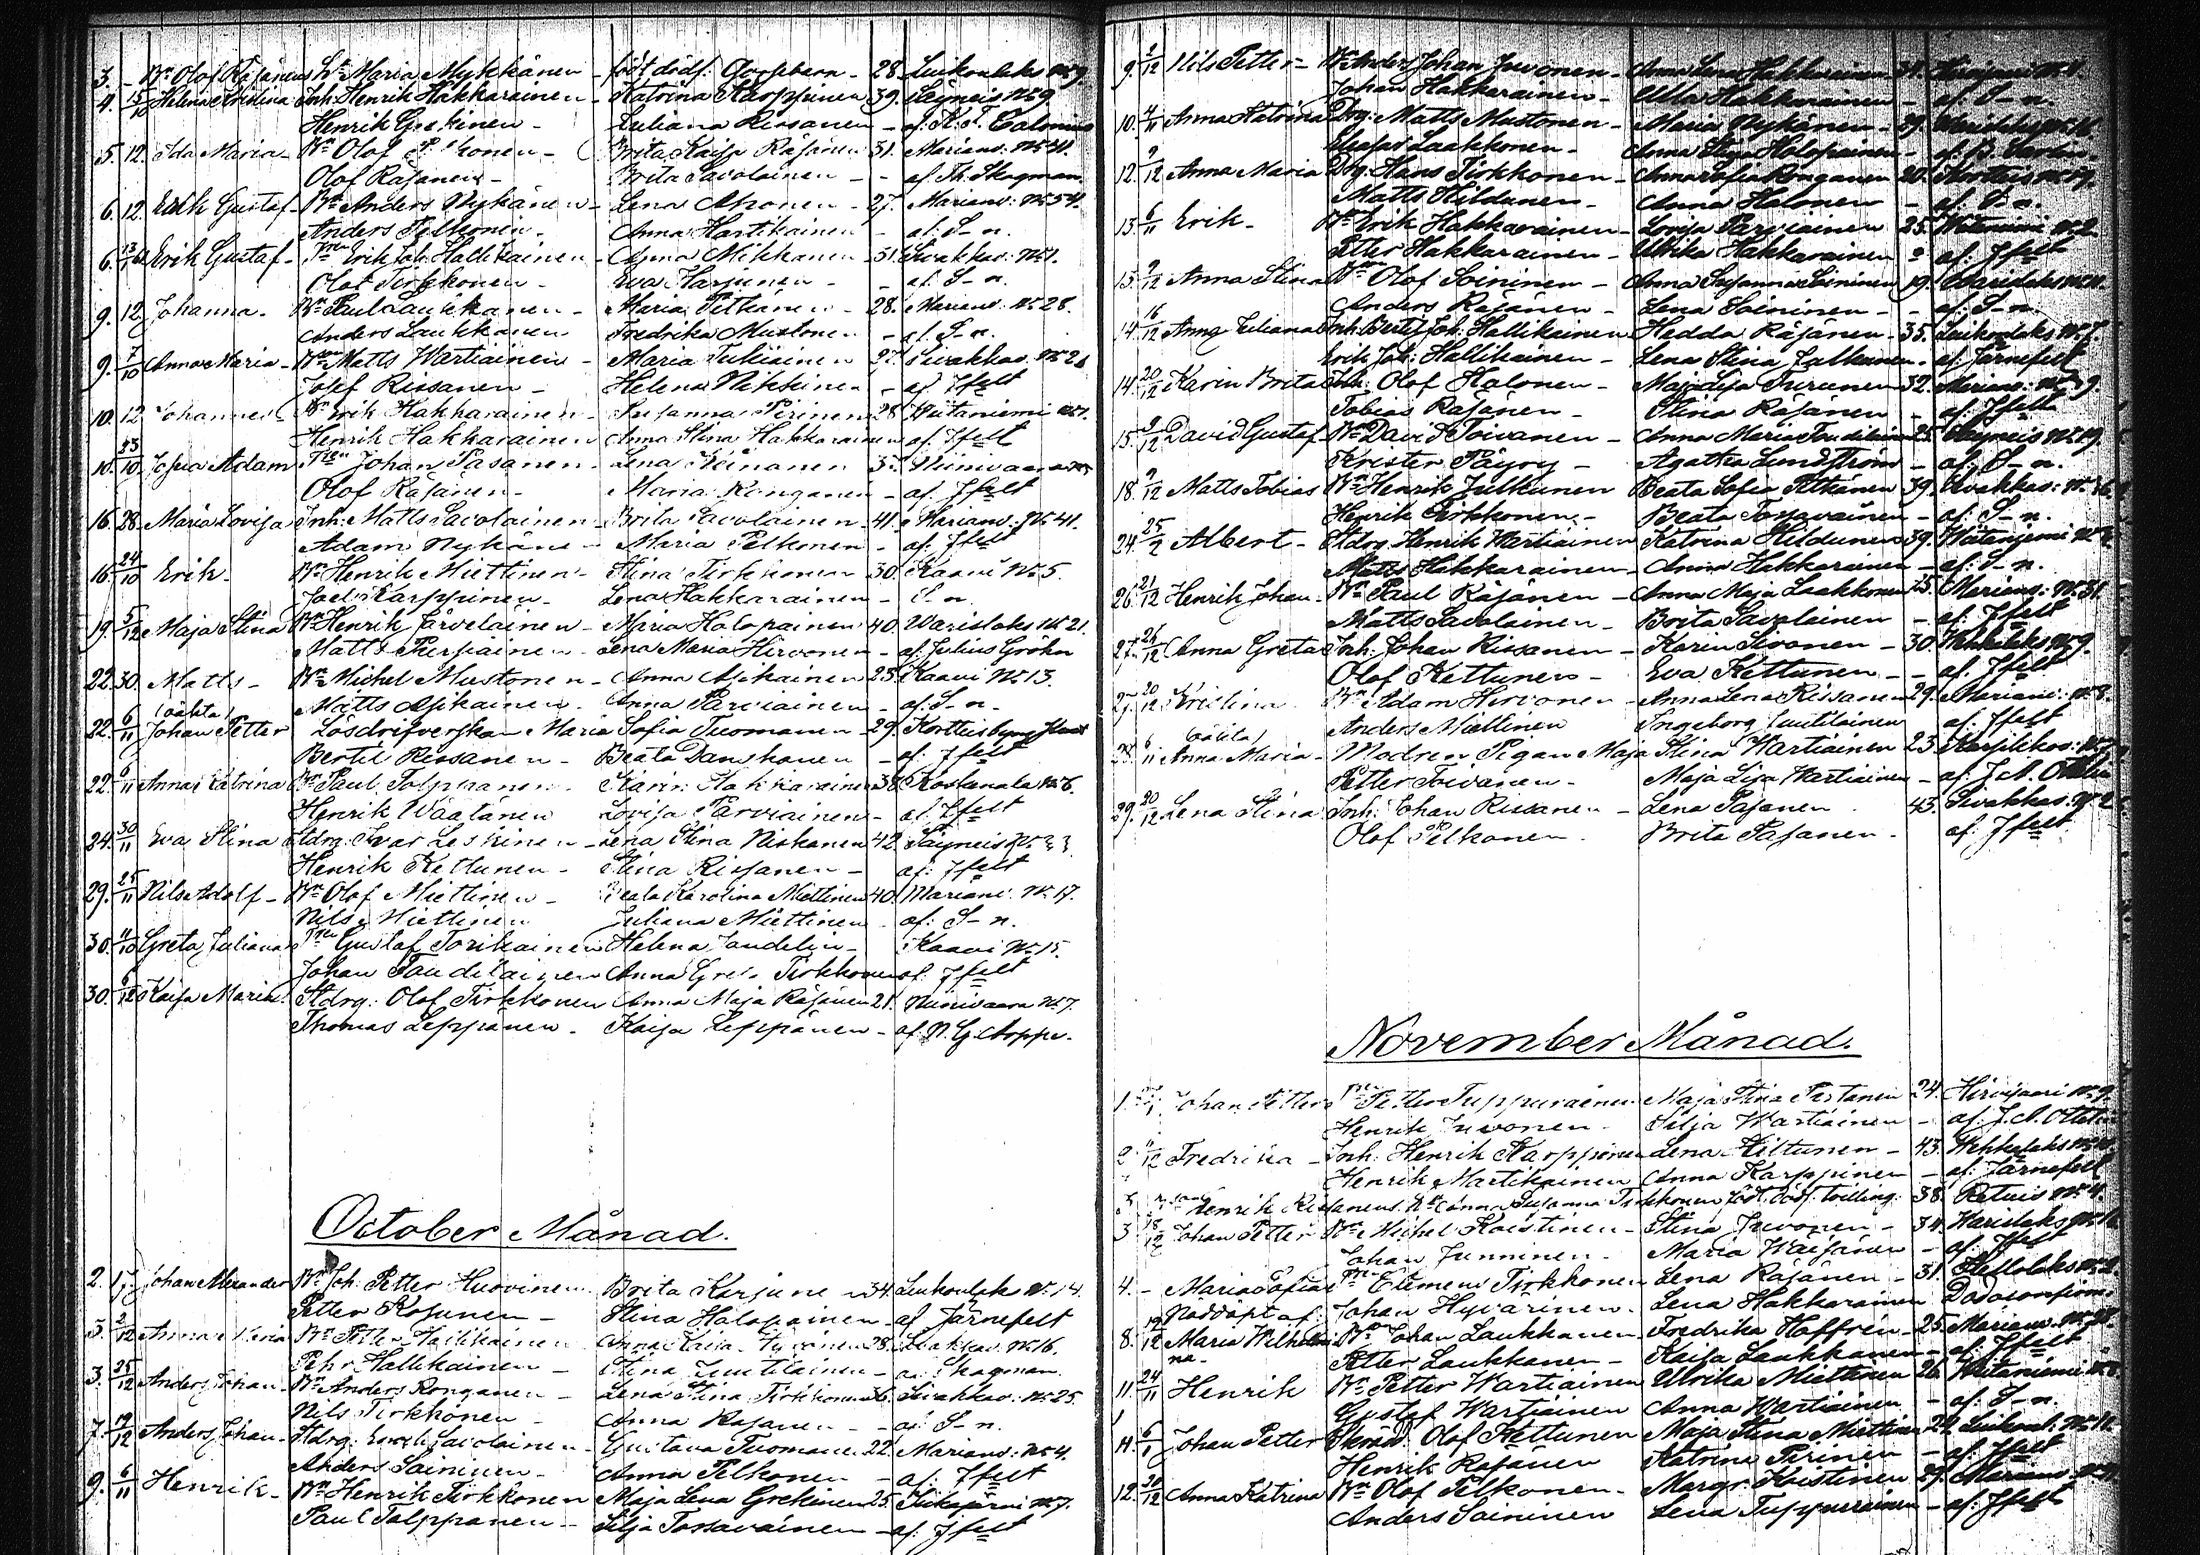 3. Bn Olof Räsänens h. Maria Mykkänen - född död: Gossebarn - 28. Luikonlaks No 9.
4. 5/10 Helena Kristina Inh: Henrik Hakkarainen - Katrina Karppinen 39. Säyneis No 9.
Henrik Grekinen - Juliana Rissanen - af
5. 12. Ida Maria - Bn Olof - Brita Kaisa Räsänen 31. Marians: No 41.
Olof Räsänen - Brita Savolainen - af Th. Skogman.
6. 12. Erik Gustaf - Bn Anders Nykänen - Lena Ahonen - 27. Marians: No 54.
Anders Pelkonen - Anna Hartikainen - af: S-n.
6. Erik Gustaf - Erik Joh: Hallikainen - Anna Mikkanen - 31. Sivakkav: No 1.
Olof Tirkkonen - Eva Harjunen - af: S-n.
9. 12. Johanna - Bn Paul Laukkanen - Maria Pitkänen - 28. Marians: No 28.
Anders Laukkanen Fredrika Mustonen - af: S-n.
9. 7/10 Anna Maria - Bn Matts Wartiainen - Maria Tukiainen 27. Sivakkav. No 2
Josef Rissanen - Helena Nikkinen - af Jfelt
10. 12 Johannes - Bn Erik Hakkarainen - Susanna Piirinen 28 Wätäniemi No 1.
Henrik Hakkarainen Anna Stina Hakkarainen af: Jfelt
10. Adam Johan Pasanen - Lena Niinivaara
Olof Räsänen - Maria Ronganen - af. Jfelt
16. 28. Maria Lovisa Inh: Matts Savolainen - Brita Savolainen - 41. Marians: No 41.
Adam Nykänen - Maria Pelkonen - af: Jfelt
16. 24/10 Erik - Bn Henrik Miettinen - Stina Tirkkonen 30. Kaavi No 5.
Joel Karppinen - Lena Hakkarainen - S-n
19. 5/12 Maja Stina Bn Henrik Järveläinen - Maria Holopainen 40. Warislaks No 21.
Matts Lena Maria Hirvonen - af: Julius Gröhn
22. 30. Matts - Bn Michel Mustonen - Anna Asikainen 23. Kaavi No 13.
Matts Asikainen - Anna Parviainen - af: S-n.
(oäkta)
22. 6/11 Johan Petter Lösdrifverskan Maria Sofia Tuomanen - 29. Kortteisby
Bertil Rissanen - Beata Danskanen - af: Jfelt
22. 6/11 Anna Katrina Bn Paul Tolppanen - Karin Hakkarainen 38. Kosulanala No 6.
Henrik Wäätänen Lovisa Parviainen - af. Jfelt
24. 30/11 Eva Stina Stdrg: Ivar Leskinen - Lena Stina Niskanen 42. Säyneis No 23
Henrik Kettunen - Stina Rissanen - af: Jfelt
29. 25/11 Nils Adolf - Bn Olof Miettinen - Beata Karolina Miettinen 40. Marians: No 17.
Nils Miettinen Juliana Miettinen - af: S-n.
30. 11/10 Greta Juliana Gustaf Torikainen Helena Jandelin - Kaavi No 15.
Johan Tanditainen Anna Greta Tirkkonen af. Jfelt
30. 6/12 Kaisa Maria Stdrg: Olof Tirkkonen Anna Maja Räsänen 21. Niinivaara No 7.
Thomas Leppänen - Kaisa Leppänen - af: N. G. Aoppe.
October Månad.
2. Johan Alexander Bn Joh: Petter Huovinen Brita Karjunen 34. Luikonlaks No 14.
Petter Rosunen - Stina Holopainen - af Järnefelt
3. 2/12 Anna Lena Bn Petter Hallikainen Anna Kaisa 28. Sivakkav. No 16.
Pehr Hallikainen - Stina Luutilainen - af Skogman.
3. 25/12 Anders Johan Bn Anders Ronganen - Lena Stina Tirkkonen 36. Sivakkav: No 25.
Nils Tirkkonen - Anna Räsänen - af S-n.
7. 19/12 Anders Johan - Stdrg: Savolainen - Gustava Tuomanen 22. Marians: No 4.
Anders Soininen - Anna Pelkonen - af: Jfelt
9. 6/11 Henrik - Bn Henrik Tirkkonen Maja Lena Grekinen 25. No 7.
Paul Tolppanen - Silja Tossavainen - af: Jfelt
9. 2/12 Nils Petter - Bn Anders Johan Juvonen - Anna Lena Hakkarainen 31. Hirvijärvi
Johan Hakkarainen - Ulla Hakkarainen - af: S-n.
10. 4/11 Anna Katrina Dbg: Matts Mustonen - Maria Nykänen - 29.
Laakkonen - Anna Holopainen
12. 9/12 Anna Maria Dbg: Hans Tirkkonen - Anna Sofia Ronganen 20. Kortteis No 19.
Matts Hildunen - Anna Halonen - af: S-n.
13. 6/11 Erik - Bn Erik Hakkarainen - Lovisa Parviainen 25. Wätäniemi No 2
Petter Hakkarainen - Ulrika Hakkarainen - af: Jfelt
13. 9/12 Anna Stina Bn Olof Soininen - Anna Susanna Soininen 19. Warislaks
Anders Räsänen - Lena Soininen - af: S-n.
14. 16/12 Anna Juliana Inh: Bertil Joh: Hallikainen - Hedda Räsänen - 35. Luikonlaks No 7.
Erik Joh: Hallikainen - Lena Stina Julkunen - af: Järnefelt
14. 20/12 Karin Brita Inh: Olof Halonen - Maja Lisa Turunen 32. Marians: No 9.
Tobias Räsänen - Stina Räsänen - af: Jfelt
15. 9/12 David Gustaf Bn David Toivanen - Anna Maria 25. Säyneis No 19.
Krister Agatha Lundström - af: S-n.
18. 9/12 Matts Tobias Bn Henrik Julkunen Beata Sofia Pitkänen 39. Sivakkav: No 16.
Henrik Tirkkonen - Beata Tossavainen - af: S-n.
24. 25/2 Albert - Stdrg Henrik Wartiainen Katrina Hildunen 39. Wätäniemi
Matts Hakkarainen - Anna Hakkarainen - af: S-n.
26. 21/12 Henrik Johan - Bn Paul Räsänen - Anna Maja Laakkonen 25. Marians: No 31.
Matts Savolainen - Brita Savolainen - af: Jfelt
27. 26/12 Anna Greta Inh: Johan Rissanen - Karin Sivonen - 30. No 9.
Olof Kettunen - Eva Kettunen - af: Jfelt
27. 20/12 Kristina Bn Adam Hirvonen - Anna Lena Rissanen 29. Marians: No 8.
Anders Miettinen Ingeborg Luutilainen af. Jfelt
(oäkta)
28. 6/11 Anna Maria - Modren Pigan Maja Stina Wartiainen 23. Karjilikos:
Petter Toivanen - Maja Lisa Wartiainen - af: J. A.
29. 20/12 Lena Stina Inh: Johan Rissanen - Lena Pasanen 43. Sivakkav: No 2
Olof Pelkonen - Brita Pasanen - af: Jfelt
November Månad.
1. Johan Petter Petter Tuppurainen Maja Stina Partanen 24. Hirvijärvi No 9.
Henrik Juvonen - Silja Wartiainen - af: J. A.
2. 11/12 Fredrika - Inh: Henrik Karppinen Lena Hiltunen - 43. Wehkalaks
Henrik Martikainen Anna Karppinen - af: Järnefelt
3. Henrik Rissanens h. Anna Susanna Tirkkonen, född död: tvilling: 38. Retuis No 4.
3. 18/12 Johan Petter Bn Michel Koistinen - Stina Juvonen - 34. Warislaks No 16.
Johan Junninen - Maria Wäisänen - af: Jfelt
4. - Maria Sofia Clemens Tirkkonen Lena Räsänen - 31. No 2.
Nöddöpt af: Johan Hyvärinen - Lena Hakkarainen
8. 19/12 Maria Wilhelmi Bn Johan Laukkanen Fredrika Hoffrén - 25. Marians:
na - Petter Laukkanen - Kaisa Laukkanen - af: Jfelt
11. 24/11 Henrik Bn Petter Wartiainen Ulrika Miettinen 26. Wätäniemi No 8.
Gustaf Wartiainen Anna Wartiainen - af: S-n.
11. 6/1 Johan Petter Olof Kettunen Maja Stina Miettinen 22. Luikonl: No 11.
Henrik Räsänen Katrina Piirinen - af: Jfelt
12. 30/12 Anna Katrina Bn Olof Pelkonen - Margr: Koistinen 29. Marians:
Anders Soininen Lena Tuppurainen - af: Jfelt